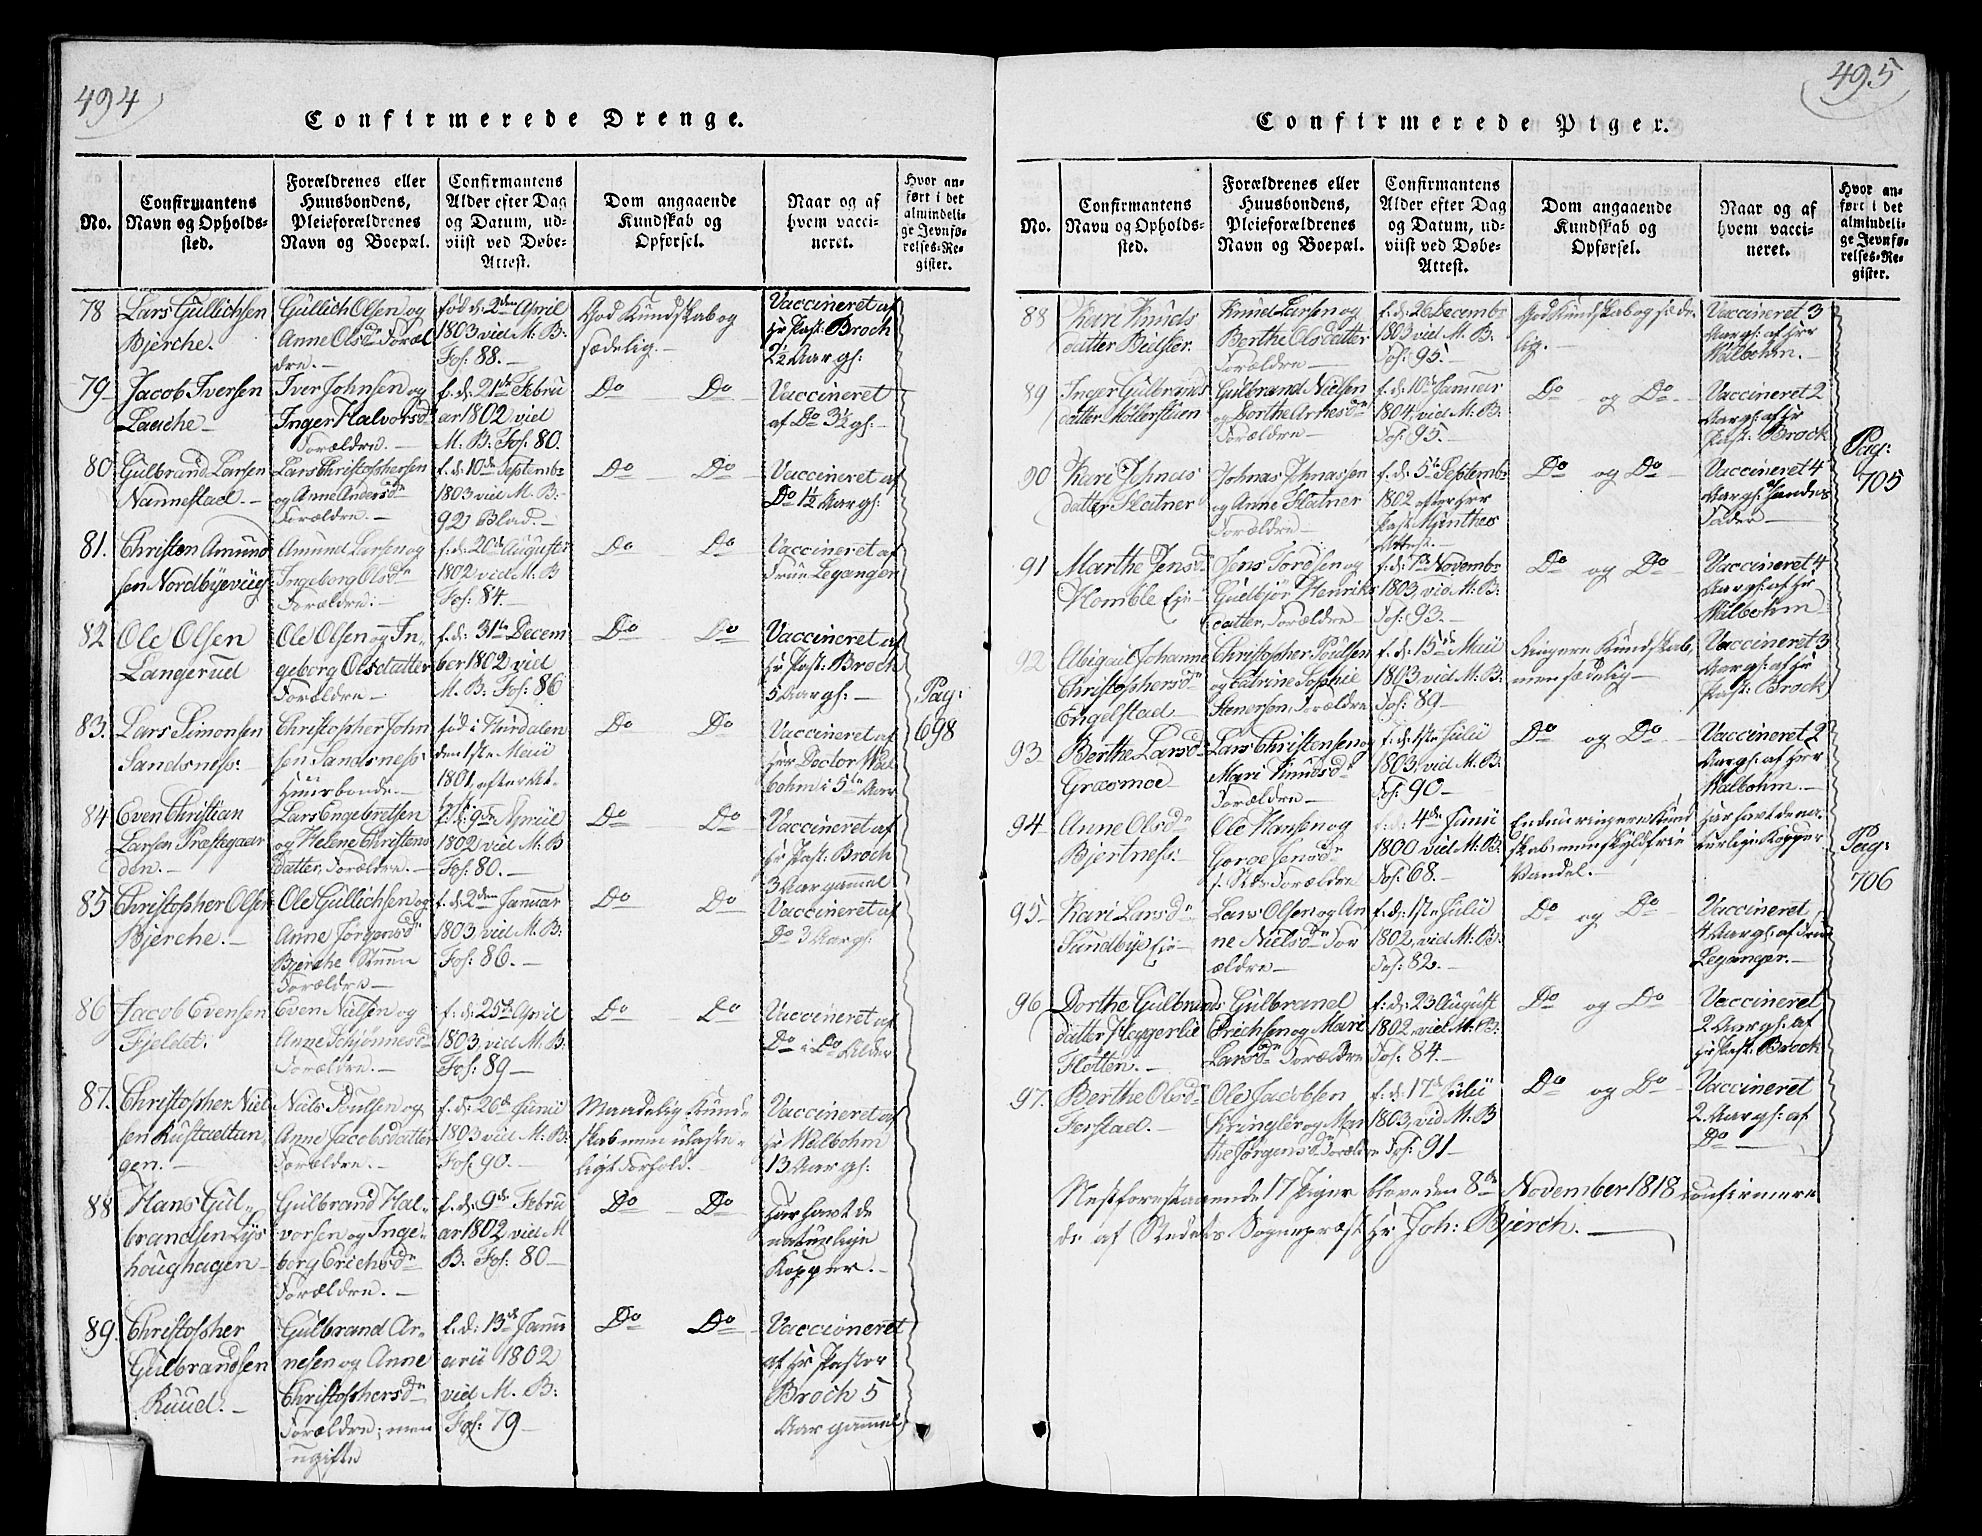 494
Confirmerede Drenge.
No.
Confirmantens Navn og Opholds-sted.
Forældrenes eller Huusbondens, Pleieforældrenes Navn og Boepæl.
Confirmantens Alder efter Dag og Datum, ud-viist ved Døbe-Attest.
Dom angaaende Kundskab og Opførsel.
Naar og af hvem vacci-neret.
Hvor an-ført i det almindeli-ge Jevnfø-relses-Re-gister.
78
Lars Gullichsen
Bjerche.
Gullich Olsen og
Anne Olsd. Foræl
dre.
fød d: 2den April
1803 vid M: B:
Fol: 88. —
God Kundskab og
sædelig. —
Vaccineret af
Hr Past: Broch
2½ Aar g:
79
Jacob Iversen
Lauche —
Iver Johnsen og
Inger Halvorsd
Forældre. —
f. d: 21de Febru
ar 1802 vid
M: B: Fol: 80.
Do Do
Vaccineret
af Do 3½ g: —
80
Gulbrand Larsen
Nannestad. —
Lars Christophersen
og Anne Andersd
Forældre. —
f. d: 10de Septembr
1803 vid M: B:
92 Blad. —
Do Do
Vaccineret af
Do 1½ Aar g:
81.
Christen Amund
sen Nordbyevieg
Amund Larsen og
Ingeborg Olsd
Forældre: —
f. d: 20de August
1802 vid M: B
Fol: 84. —
Do Do
Vaccineret af
Frue Leganger
82
Ole Olsen
Langerud
Ole Olsen og In-
geborg Olsdatter
Forældre —
f. d: 31te Decem
ber 1802 vid
M. B: Fol: 86
Do Do
Vaccineret af
Hr Past: Broch
5 Aar g: —
Pag:
698
83.
Lars Simonsen
Sandsness:
Christopher John
sen Sandsness:
Huusbonde. —
fød i Hurdalen
den 1ste Maii
1801, efter At-
Do Do
Vaccineret af
Herr Doctor Wel
bohm i 5te Aar
84
Even Christian
Larsen Præstegaar
den. —
Lars Engebretsen
og Helene Christens
datter, Forældre. —
f. d: 9de April
1802 vid M: B
Fol: 80. —
Do Do
Vaccineret af
Hr Past: Broch
3 Aar gammel
85
Christopher Olsen
Bjerche. —
Ole Gullichsen og
Anne Jørgensd
Bjerche Stuen
Forældre —
f. d: 2den Januar
1803, vid M: B:
Fol: 86. —
Do Do
Vaccineret af
Do 3 Aar g:
86
Jacob Evensen
Fjeldet.
Even Nilsen og
Anne Schjønnesd
Forældre. —
f. d: 25de April
1803, vid M: B:
Fol: 89 —
Do Do
Vaccineret af
Do i Do Alder
87.
Christopher Niel
sen Rustadtan
gen. —
Niels Poulsen og
Anne Jacobsdatter
Forældre. —
f. d: 26de Junii
1803 vid M: B:
Fol: 90. —
Maadelig Kund-
skab men ulaste-
ligt Forhold. —
Vaccineret af
Hr Welbohm
13 Aar g:
88
Hans Gul-
brandsen Lys
houghagen —
Gulbrand Hal
vorsen og Inge-
borg Erichsd
Forældre. —
f. d: 9de Febru
ar 1802, vid M
B: Fol: 80 —
Do Do
Har havt de
naturlige
Kopper. —
89.
Christopher
Gulbrandsen
Ruud. —
Gulbrand Ar-
nesen og Anne
Christophersd
Forældre, men
ugifte
f. d: 13de Janu
arii 1802
vid M. B:
Fol: 79 —
Do Do
Vaccioneret
af Hr Pastor
Broch 5
Aar gammel
495
Confirmerede Piger.
No.
Confirmantens Navn og Opholds-sted.
Forældrenes eller Huusbondens, Pleieforældrenes Navn og Boepæl.
Confirmantens Alder efter Dag og Datum, ud-viist ved Døbe-Attest.
Dom angaaende Kundskab og Opførsel.
Naar og af hvem vacci-neret.
Hvor an-ført i det almindeli-ge Jevnfø-relses-Re-gister.
88
Kari Knuds
datter Bidster.
Knud Larsen og
Berthe Olsdatter
Forældre —
f. d: 26 Decembr
1803 vid M: B:
Fol: 95. —
God Kundskab og sæde
lig. —
Vaccineret 3
Aar g: af Herr
Wilbohm. —
89
Inger Gulbrands
datter Mollerstuen
Gulbrand Nielsen
og Dorthe Arnesd
Forældre —
f. d: 10de Januar
1804, vid M: B:
Fol: 95. —
Do og Do —
Vaccineret 2
Aar g: af Hr
Past: Brock
Pag:
705
90
Kari Johnas
datter Slatner
Johnas Johnassen
og Anne Slatner
Forældre —
f. d: 5te Septembr
1802 efter Herr
Past: Mynthes
Attest. —
Do og Do
Vaccineret 4
Aar g: af hendes
Fader —
91
Marthe Jensd
Homble Eje —
Jens Tordsen og
Gudbjør Henriks
datter, Forældre —
f. d: 13de Novembr
1803, vid M: B:
Fol: 93. —
Do og Do
Vaccineret 4
Aar g: af Hr
Wilbohm
92
Abigail Johanne
Christophersd
Engelstad —
Christopher Poulsen
og Catrine Sophie
Stenersen, Forældre
f. d: 15de Maii
1803, vid M: B:
Fol: 89 —
Ringere Kundskab,
men sædelig —
Vaccineret 3
Aar g: af Hr
Past: Brock
93
Berthe Larsd
Græsmoe
Lars Christensen og
Mari Knudsd
Forældre —
f. d: 1ste Julii
1803, vid M: B:
Fol: 90 —
Do og Do
Vaccineret 2
Aar g: af Herr
Walbohm. —
94
Anne Olsd
Bjertness:
Ole Hansen og
Forældre
f. d: 4de Junii
1800 vid M: B:
Fol: 68. —
Endnu ringere Kund
skab men skyldfrie
Vandel. —
Har havt de na-
turlige Kopper
Pag:
706
95
Kari Larsd
Sundbye Eje —
Lars Olsen og An
ne Nielsd For
ældre —
f. d: 1ste Julii
1802, vid M: B:
Fol: 82. —
Do og Do
Vaccineret
4 Aar g: af Frue
Leganger. —
96
Dorthe Gulbrands
datter Heggerlie
Flotten. —
Gulbrand
Erichsen og Mari
Larsd Forældre
f: d: 23 August
1802, vid M: B:
Fol: 84. —
Do og Do
Vaccineret
2 Aar g: af
Hr Past: Brock
97.
Berthe Olsd
Ferstad. —
Ole Jacobsen
Kringler og Mar
the Jørgensd Forældre
f. d: 17de Julii
1803, vid M: B
Fol: 91 —
Do og Do
Vaccineret
2 Aar g: af
Do —
Nestforestaaende 17 Piger bleve den 8de November 1818 confirmere
de af Stedets Sogneprest Hr Joh: Bjerch. —